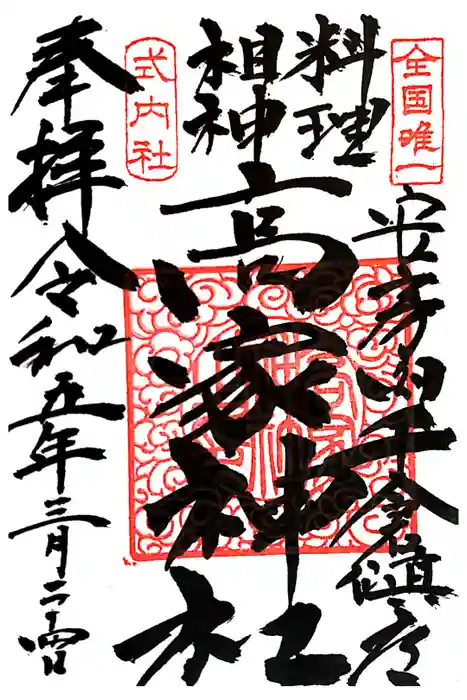 全国唯一
安房 千倉鎮座
料理
祖神
高家神社
式内社
奉拝
令和五年三月二十四日